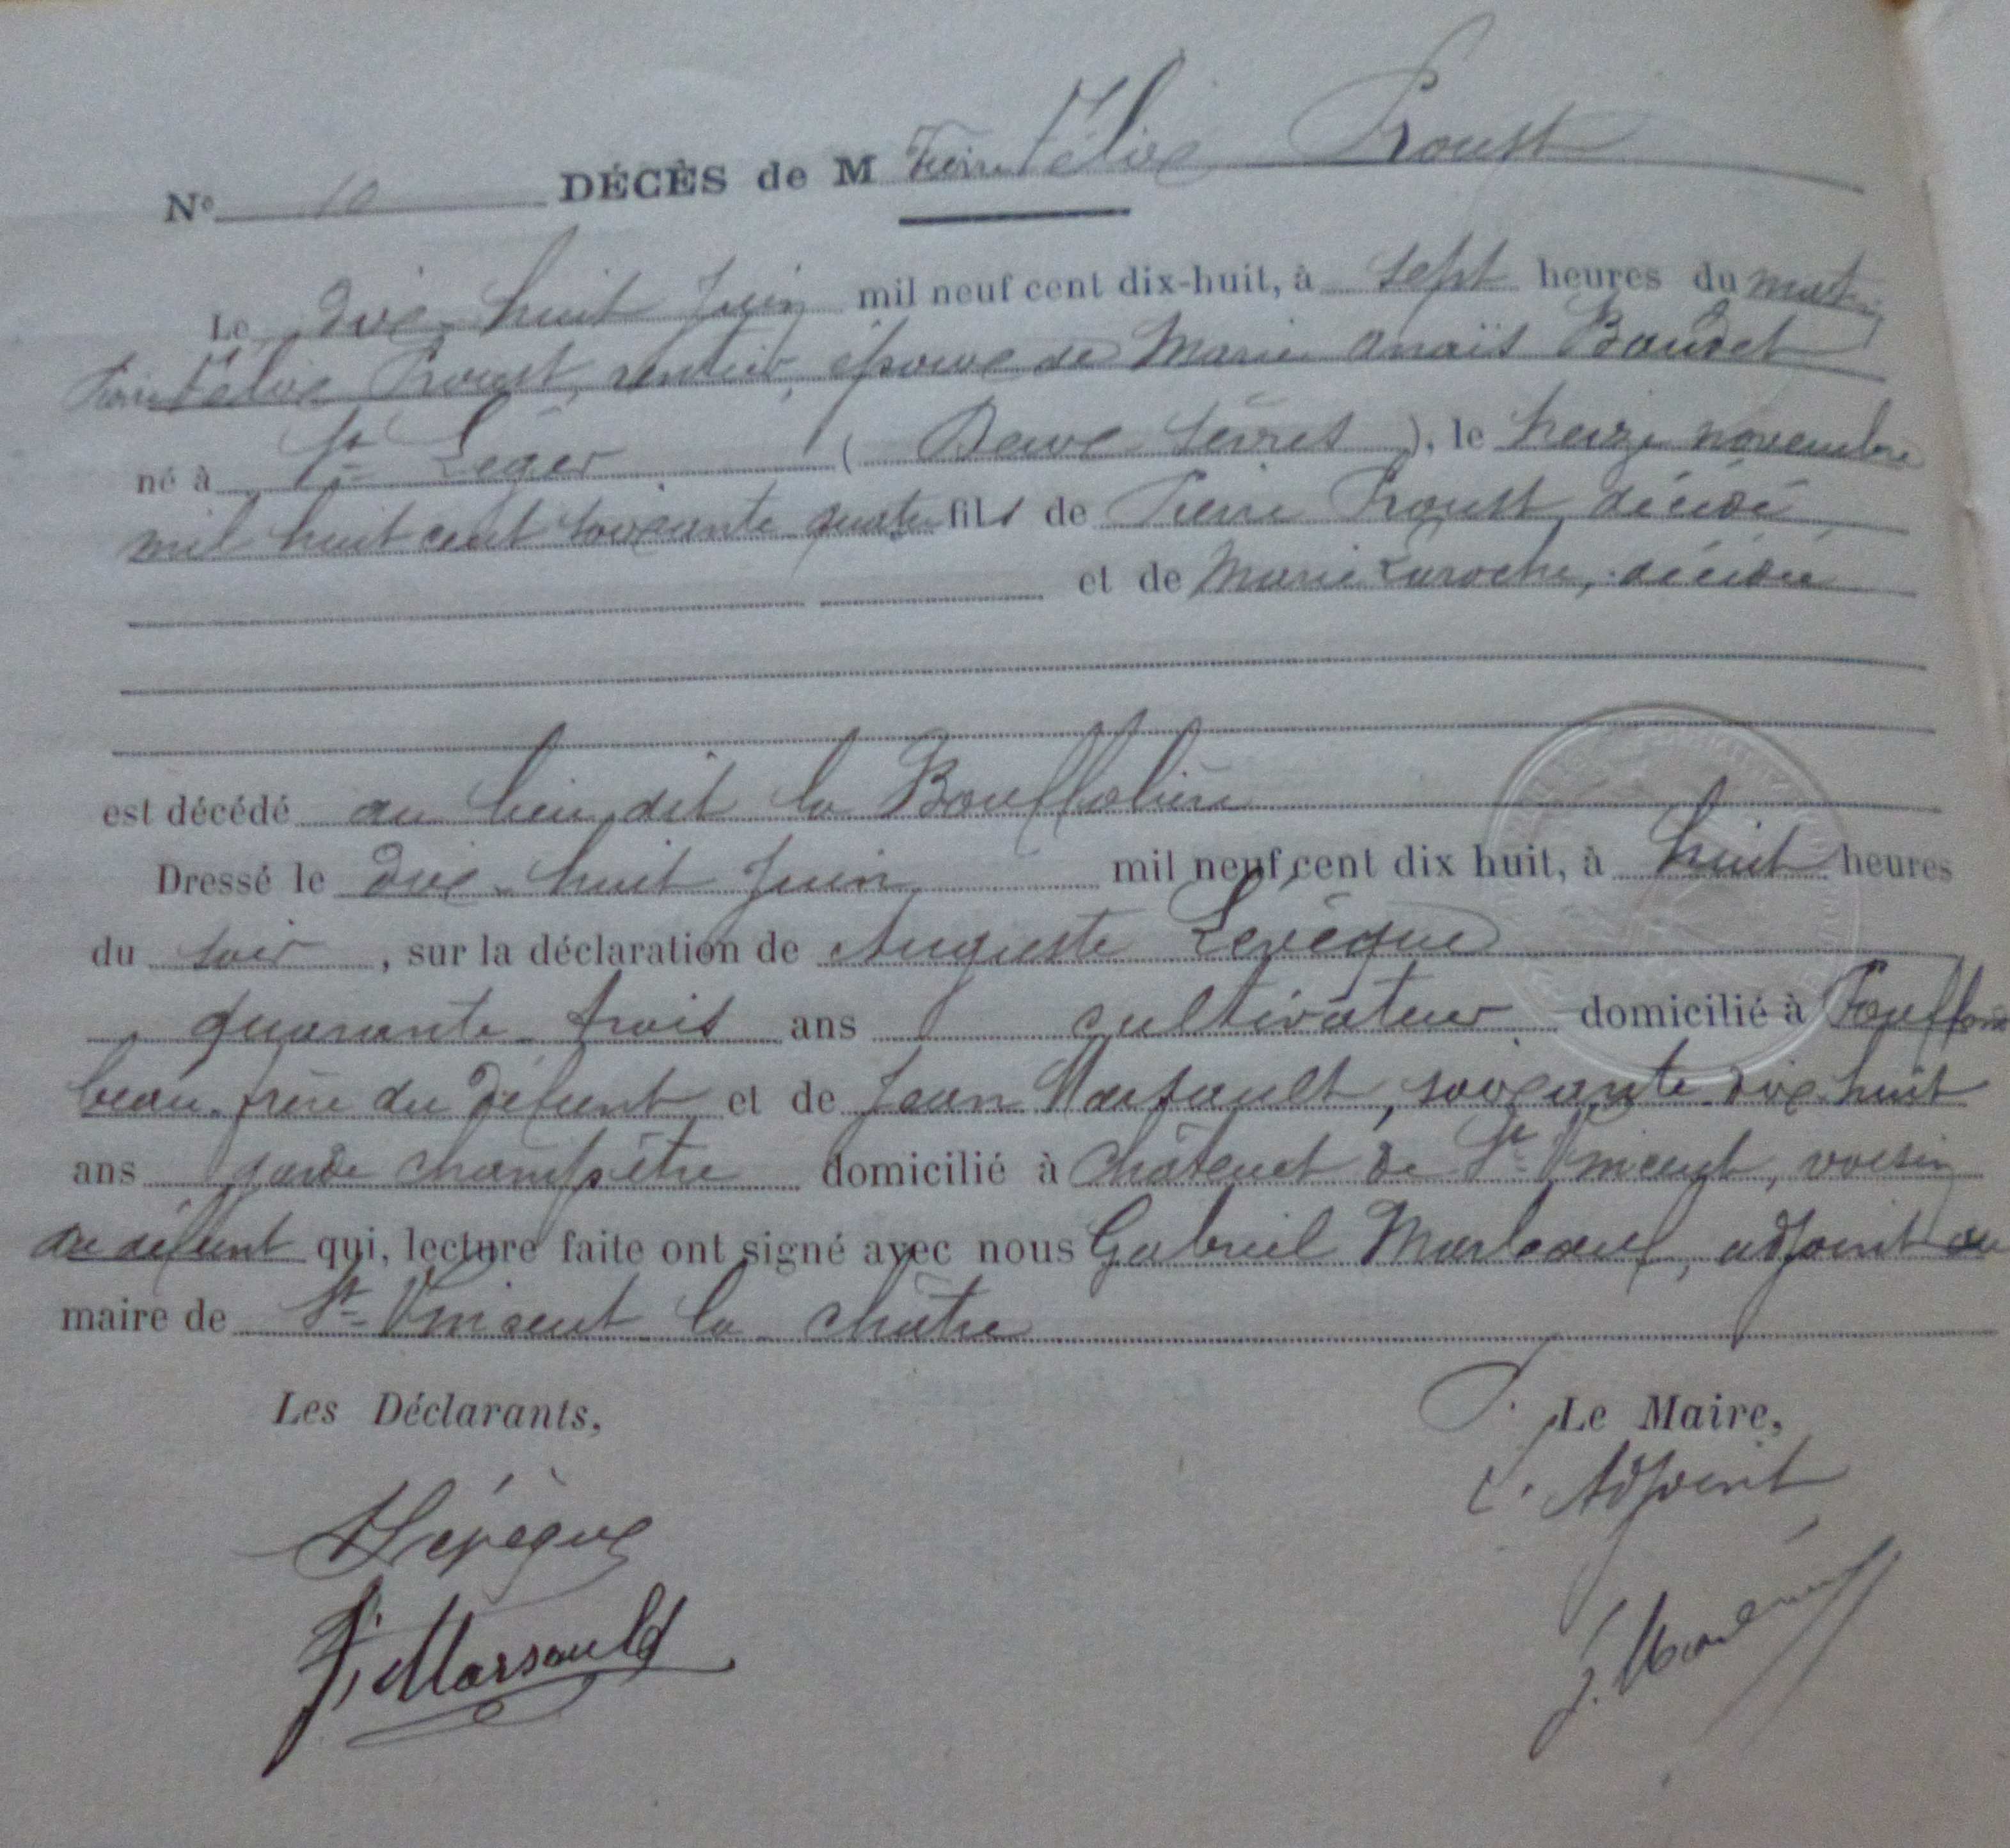 N° 10 DÉCÈS de M Pierre Félix Proust
Le dix-huit Juin mil neuf cent dix-huit, à sept heures du matin
Pierre Félix Proust, rentier, époux de Marie Anaïs Baudet
né à St Léger ( Deux Sèvres ), le treize novembre
mil huit cent soixante quatre fils de Pierre Proust décédé
et de Marie Laroche, décédée
est décédé au lieu dit la Bouffolière
Dressé le dix-huit Juin mil neuf cent dix huit, à huit heures
du soir , sur la déclaration de Auguste Lévêque
quarante trois ans cultivateur domicilié à
beau-frère du défunt et de Jean Marsault, soixante dix-huit
ans garde champêtre domicilié à Châtenet de St Vincent, voisin
du défunt qui, lecture faite ont signé avec nous Gabriel adjoint au
maire de St Vincent la châtre
Les Déclarants,
P. Le Maire,
L'Adjoint
ALévêque
Marsault